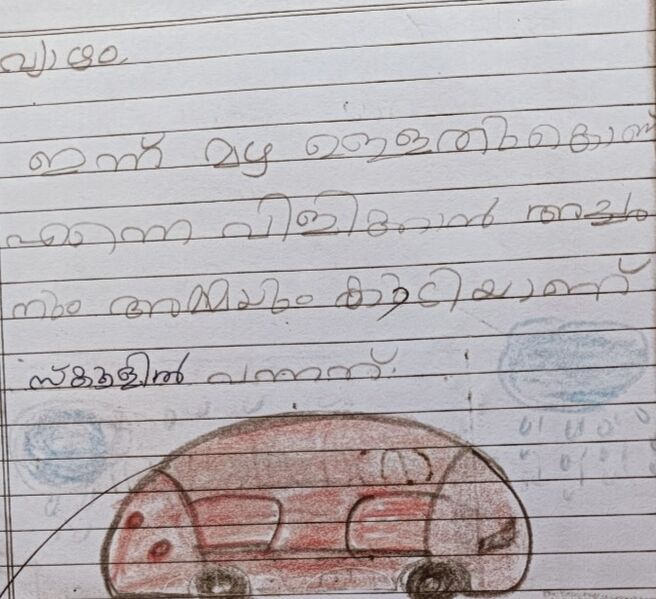 വ്യാഴം
ഇന്ന് മഴ ഉള്ളതുകൊണ്ട്
എന്നെ വിളിക്കാൻ അച്ഛ
നും അമ്മയും കൂടിയാണ്
സ്കൂളിൽ വന്നത്.